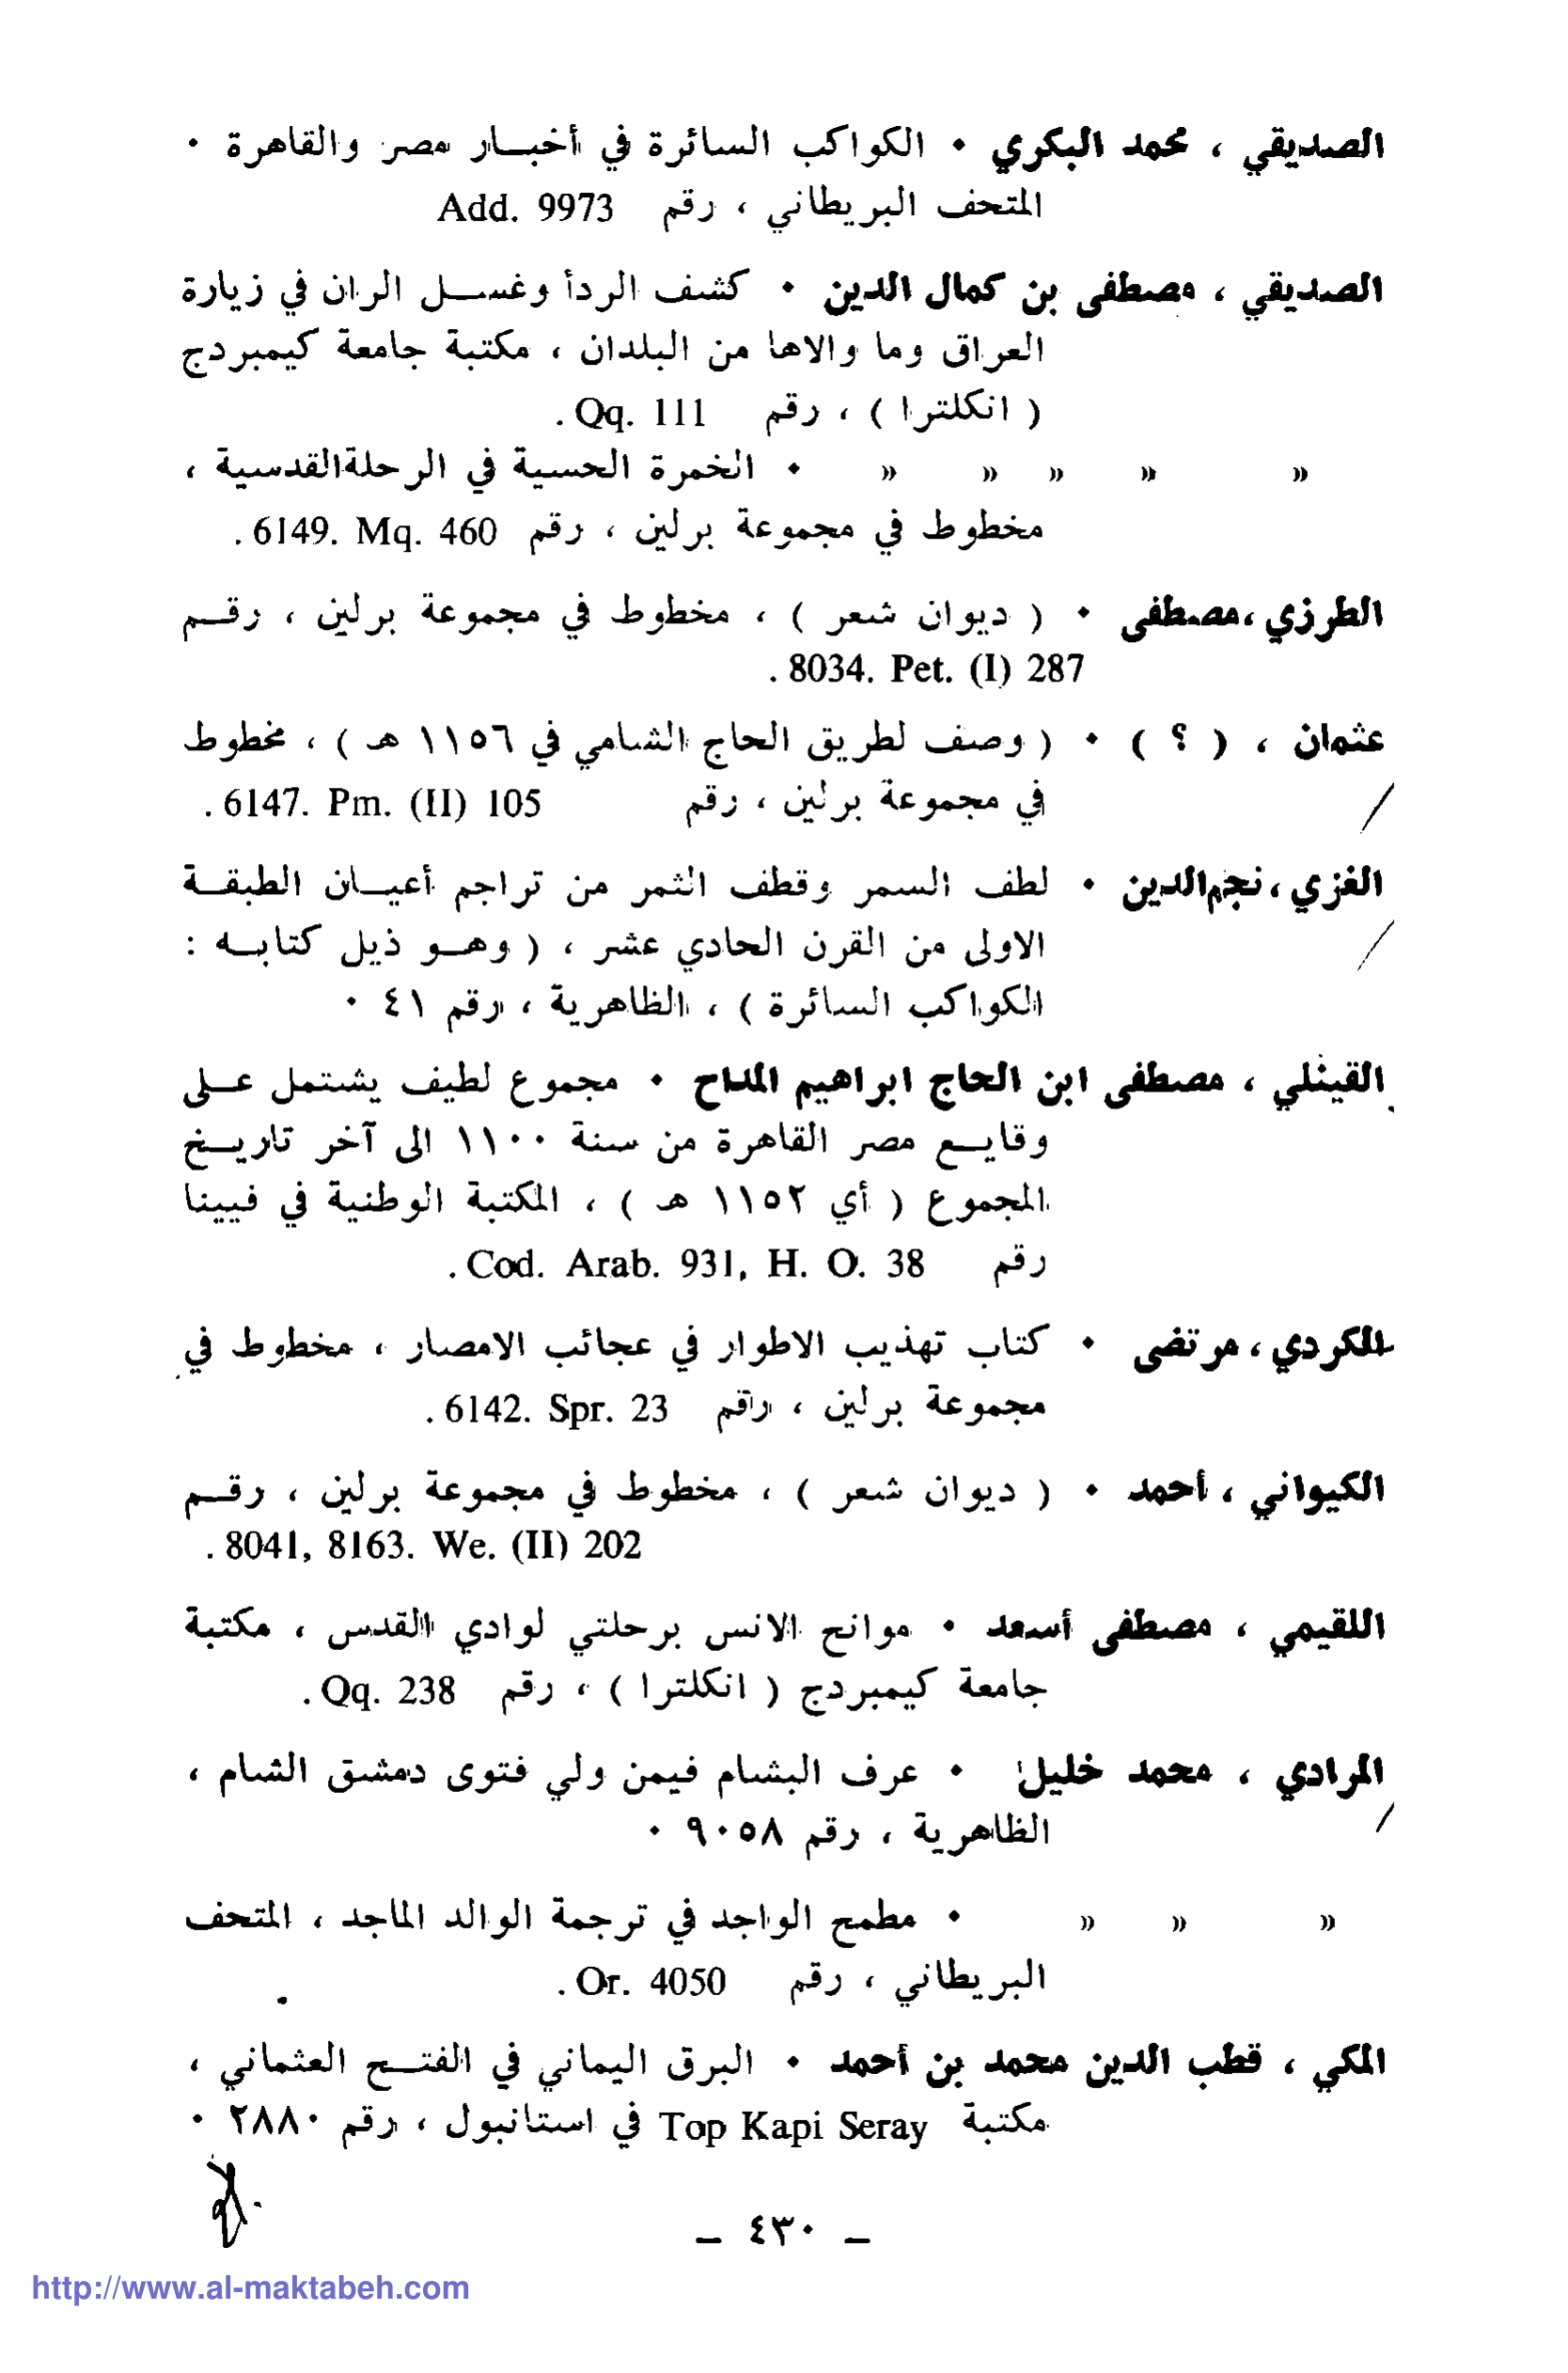 الصديقي ، محمد البكري • الكواكب السائرة في أخبـــار مصر والقاهرة •
المتحف البريطاني ، رقم Add. 9973
الصديقي ، مصطفى بن كمال الدين • كشف الردأ وغســـل الران في زيارة
العراق وما والاها من البلدان ، مكتبة جامعة كيمبردج
( انكلترا ) ، رقم Qq. 111 .
» » » » » • الخمرة الحسية في الرحلةالقدسية ،
مخطوط في مجموعة برلين ، رقم 6149. Mq. 460 .
الطرزي ،مصطفى • ( ديوان شعر ) ، مخطوط في مجموعة برلين ، رقــم
8034. Pet. (I) 287 .
عثمان ، ( ؟ ) • ( وصف لطريق الحاج الشامي في ١١٥٦ هـ ) ، مخطوط
في مجموعة برلين ، رقم 6147. Pm. (II) 105 .
الغزي ، نجم الدين • لطف السمر وقطف الثمر من تراجم أعيــان الطبقــة
الاولى من القرن الحادي عشر ، ( وهــو ذيل كتابــه :
الكواكب السائرة ) ، الظاهرية ، رقم ٤١ •
القينلي ، مصطفى ابن الحاج ابراهيم المداح • مجموع لطيف يشتمل عــلى
وقايــع مصر القاهرة من سنة ١١٠٠ الى آخر تاريــخ
المجموع ( أي ١١٥٢ هـ ) ، المكتبة الوطنية في فيينا
رقم Cod. Arab. 931, H. O. 38 .
الكردي ، مرتضى • كتاب تهذيب الاطوار في عجائب الامصار ، مخطوط في
مجموعة برلين ، رقم 6142. Spr. 23 .
الكيواني ، أحمد • ( ديوان شعر ) ، مخطوط في مجموعة برلين ، رقــم
8041, 8163. We. (II) 202 .
اللقيمي ، مصطفى أسعد • موانح الانس برحلتي لوادي القدس ، مكتبة
جامعة كيمبردج ( انكلترا ) ، رقم Qq. 238 .
المرادي ، محمد خليل • عرف البشام فيمن ولي فتوى دمشق الشام ،
الظاهرية ، رقم ٩٠٥٨ •
» » » • مطمح الواجد في ترجمة الوالد الماجد ، المتحف
البريطاني ، رقم Or. 4050 .
المكي ، قطب الدين محمد بن أحمد • البرق اليماني في الفتــح العثماني ،
مكتبة Top Kapi Seray في استانبول ، رقم ٢٨٨٠ •
– ٤٣٠ –
http://www.al-maktabeh.com